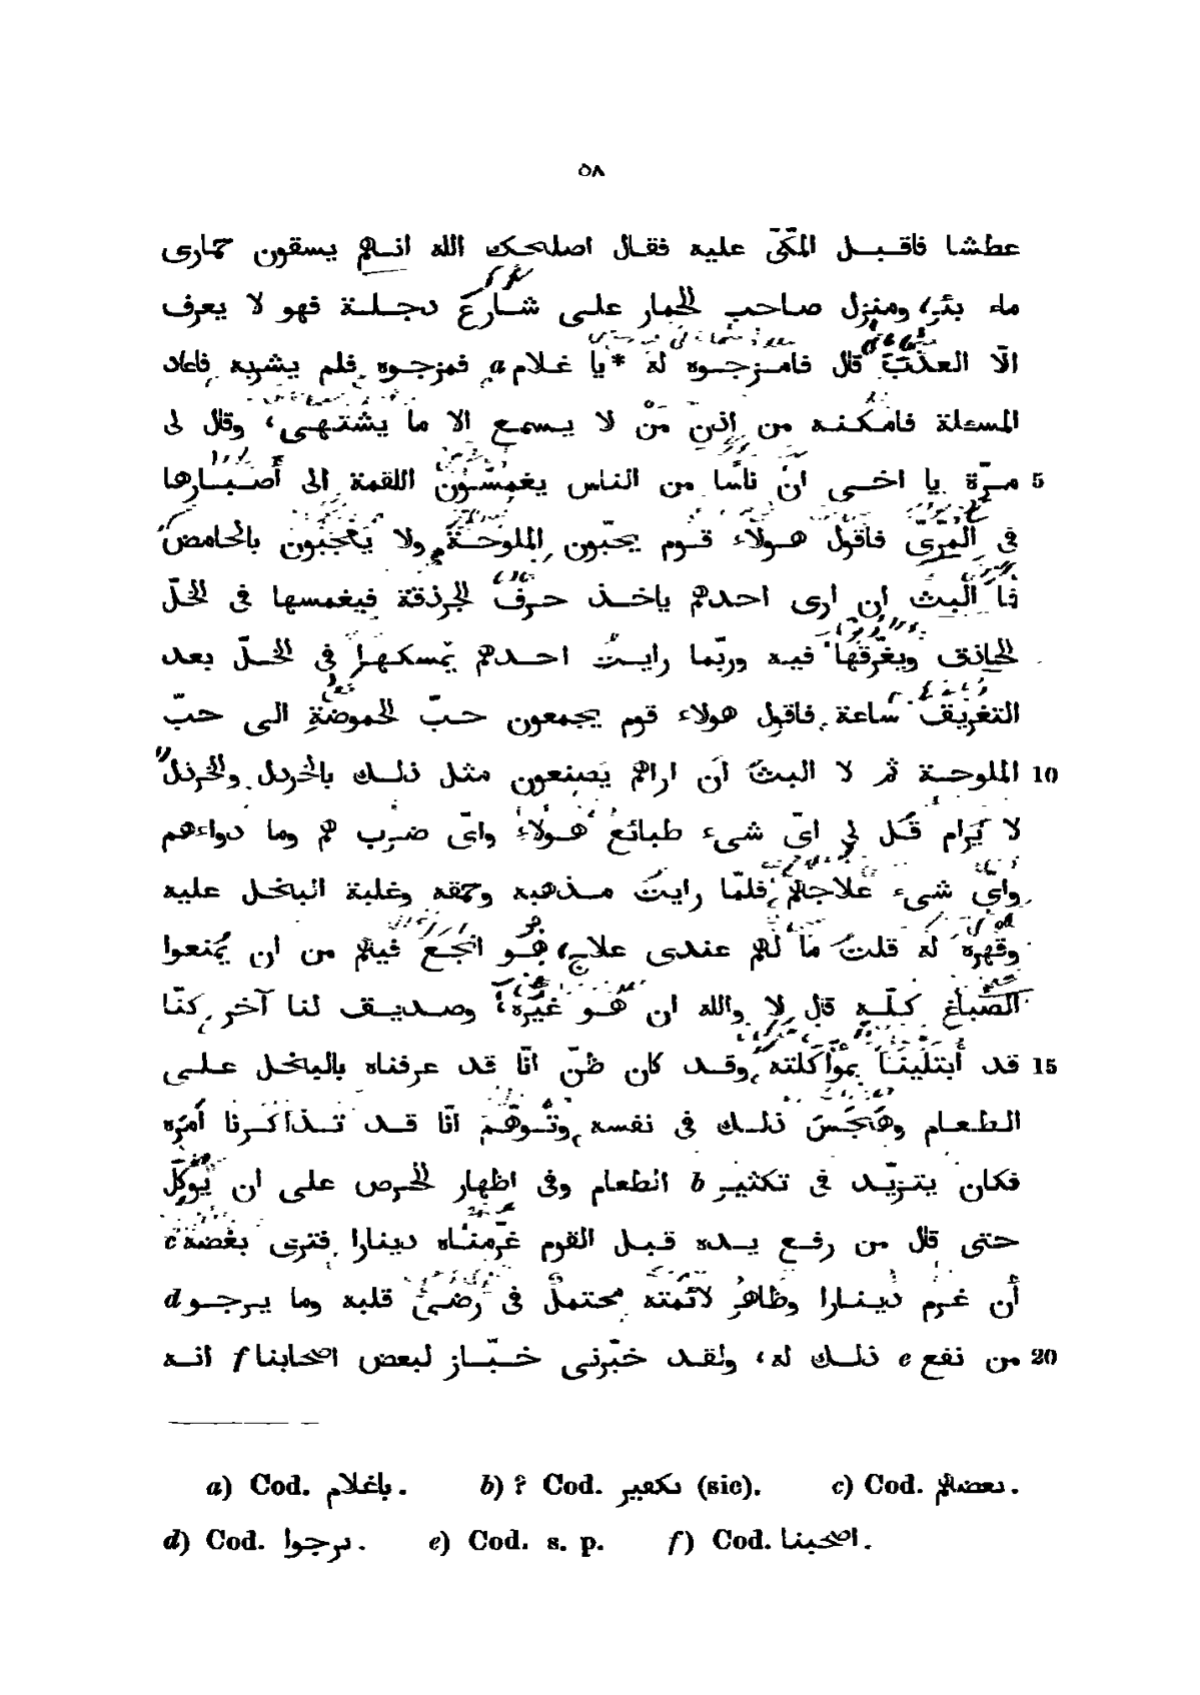 ٥٨
عطشا فاقبل المكّىّ عليه فقال اصلحك الله انهم يسقون حمارى
ماء بئر، ومنزل صاحب الحمار على شارع دجلة فهو لا يعرف
الّا العذب قال فامزجوه له *يا غلام a فمزجوه فلم يشربه فاعاد
المسءلة فامكنه من اذن من لا يسمع الا ما يشتهى، وقال لى
5 مرّة يا اخى انّ ناسًا من الناس يغمسون اللقمة الى أصبارها
فى المرّىّ فاقول هولاء قوم يحبّون الملوحة ولا يعجبون بالحامض
فما البث ان ارى احدهم ياخذ حرف الجرذقة فيغمسها فى الخلّ
الحاذق ويغرّقها فيه وربّما رايت احدهم يمسكها فى الخلّ بعد
التغريق ساعة فاقول هولاء قوم يجمعون حبّ الحموضة الى حبّ
10 الملوحة ثم لا البث ان اراهم يصنعون مثل ذلك بالخردل والخردل
لا يُرام قُل لى اىّ شىء طبائع هولاء واىّ ضرب هم وما دواءهم
واىّ شىء علاجهم، فلمّا رايت مذهبه وحمقه وغلبة البخل عليه
وقهره له قلت ما لهم عندى علاج، هو انجع فيهم من ان يُمنعوا
الصباغ كلّه قال لا والله ان هو غيره، وصديق لنا آخر كنّا
15 قد أبتلينا بمواكلته وقد كان ظنّ انّا قد عرفناه بالبخل على
الطعام وهجس ذلك فى نفسه وتوهّم انّا قد تذاكرنا أمره
فكان يتزيّد فى تكثير b الطعام وفى اظهار الحرص على ان يُوكل
حتى قال من رفع يده قبل القوم غرّمناه دينارا فترى بغضه c
أن غرم دينارا وظاهر لائمته محتمل فى رضى قلبه وما يرجو d
20 من نفع e ذلك له، ولقد خبّرنى خبّاز لبعض اصحابنا f انه
a) Cod. باغلام. b) ? Cod. ىكعىىر (sic). c) Cod. ىعضالم.
d) Cod. ىرجوا. e) Cod. s. p. f) Cod. اصحبىنا.